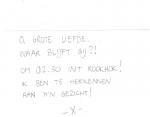 O GROTE LIEFDE....
WAAR BLIJFT GIJ?!
OM 02.30 INT ROOKHOK!
IK BEN TE HERKENNEN
AAN M'N GEZICHT!
-X-